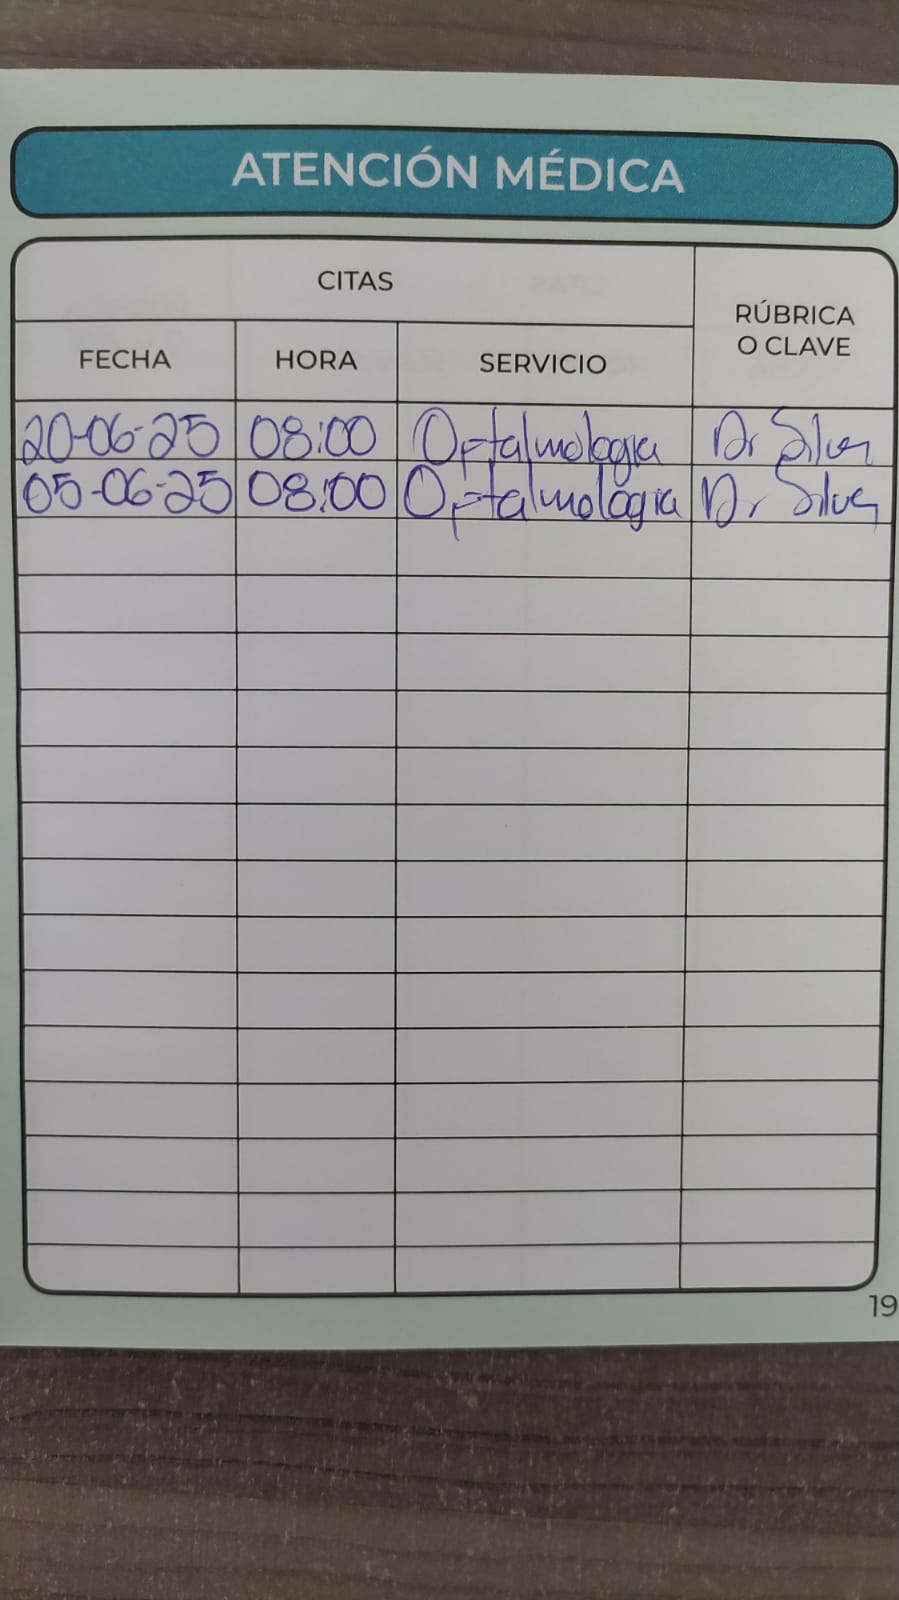 ATENCIÓN MÉDICA
CITAS
RÚBRICA
O CLAVE
FECHA HORA SERVICIO
20-06-25 08:00 Oftalmologia Dr Silva
05-06-25 08:00 Oftalmologia Dr Silva
19